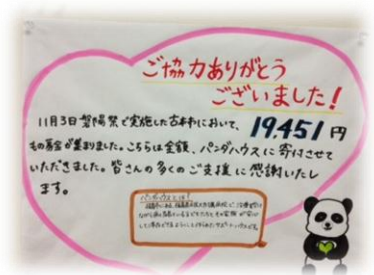 ご協力ありがとう
ございました!
11月3日磐陽祭で実施した古本市において、19,451円
もの募金が集まりました。こちらは全額、パンダハウスに寄付させて
いただきました。皆さんの多くのご支援に感謝いたし
ます。
パンダハウスとは?